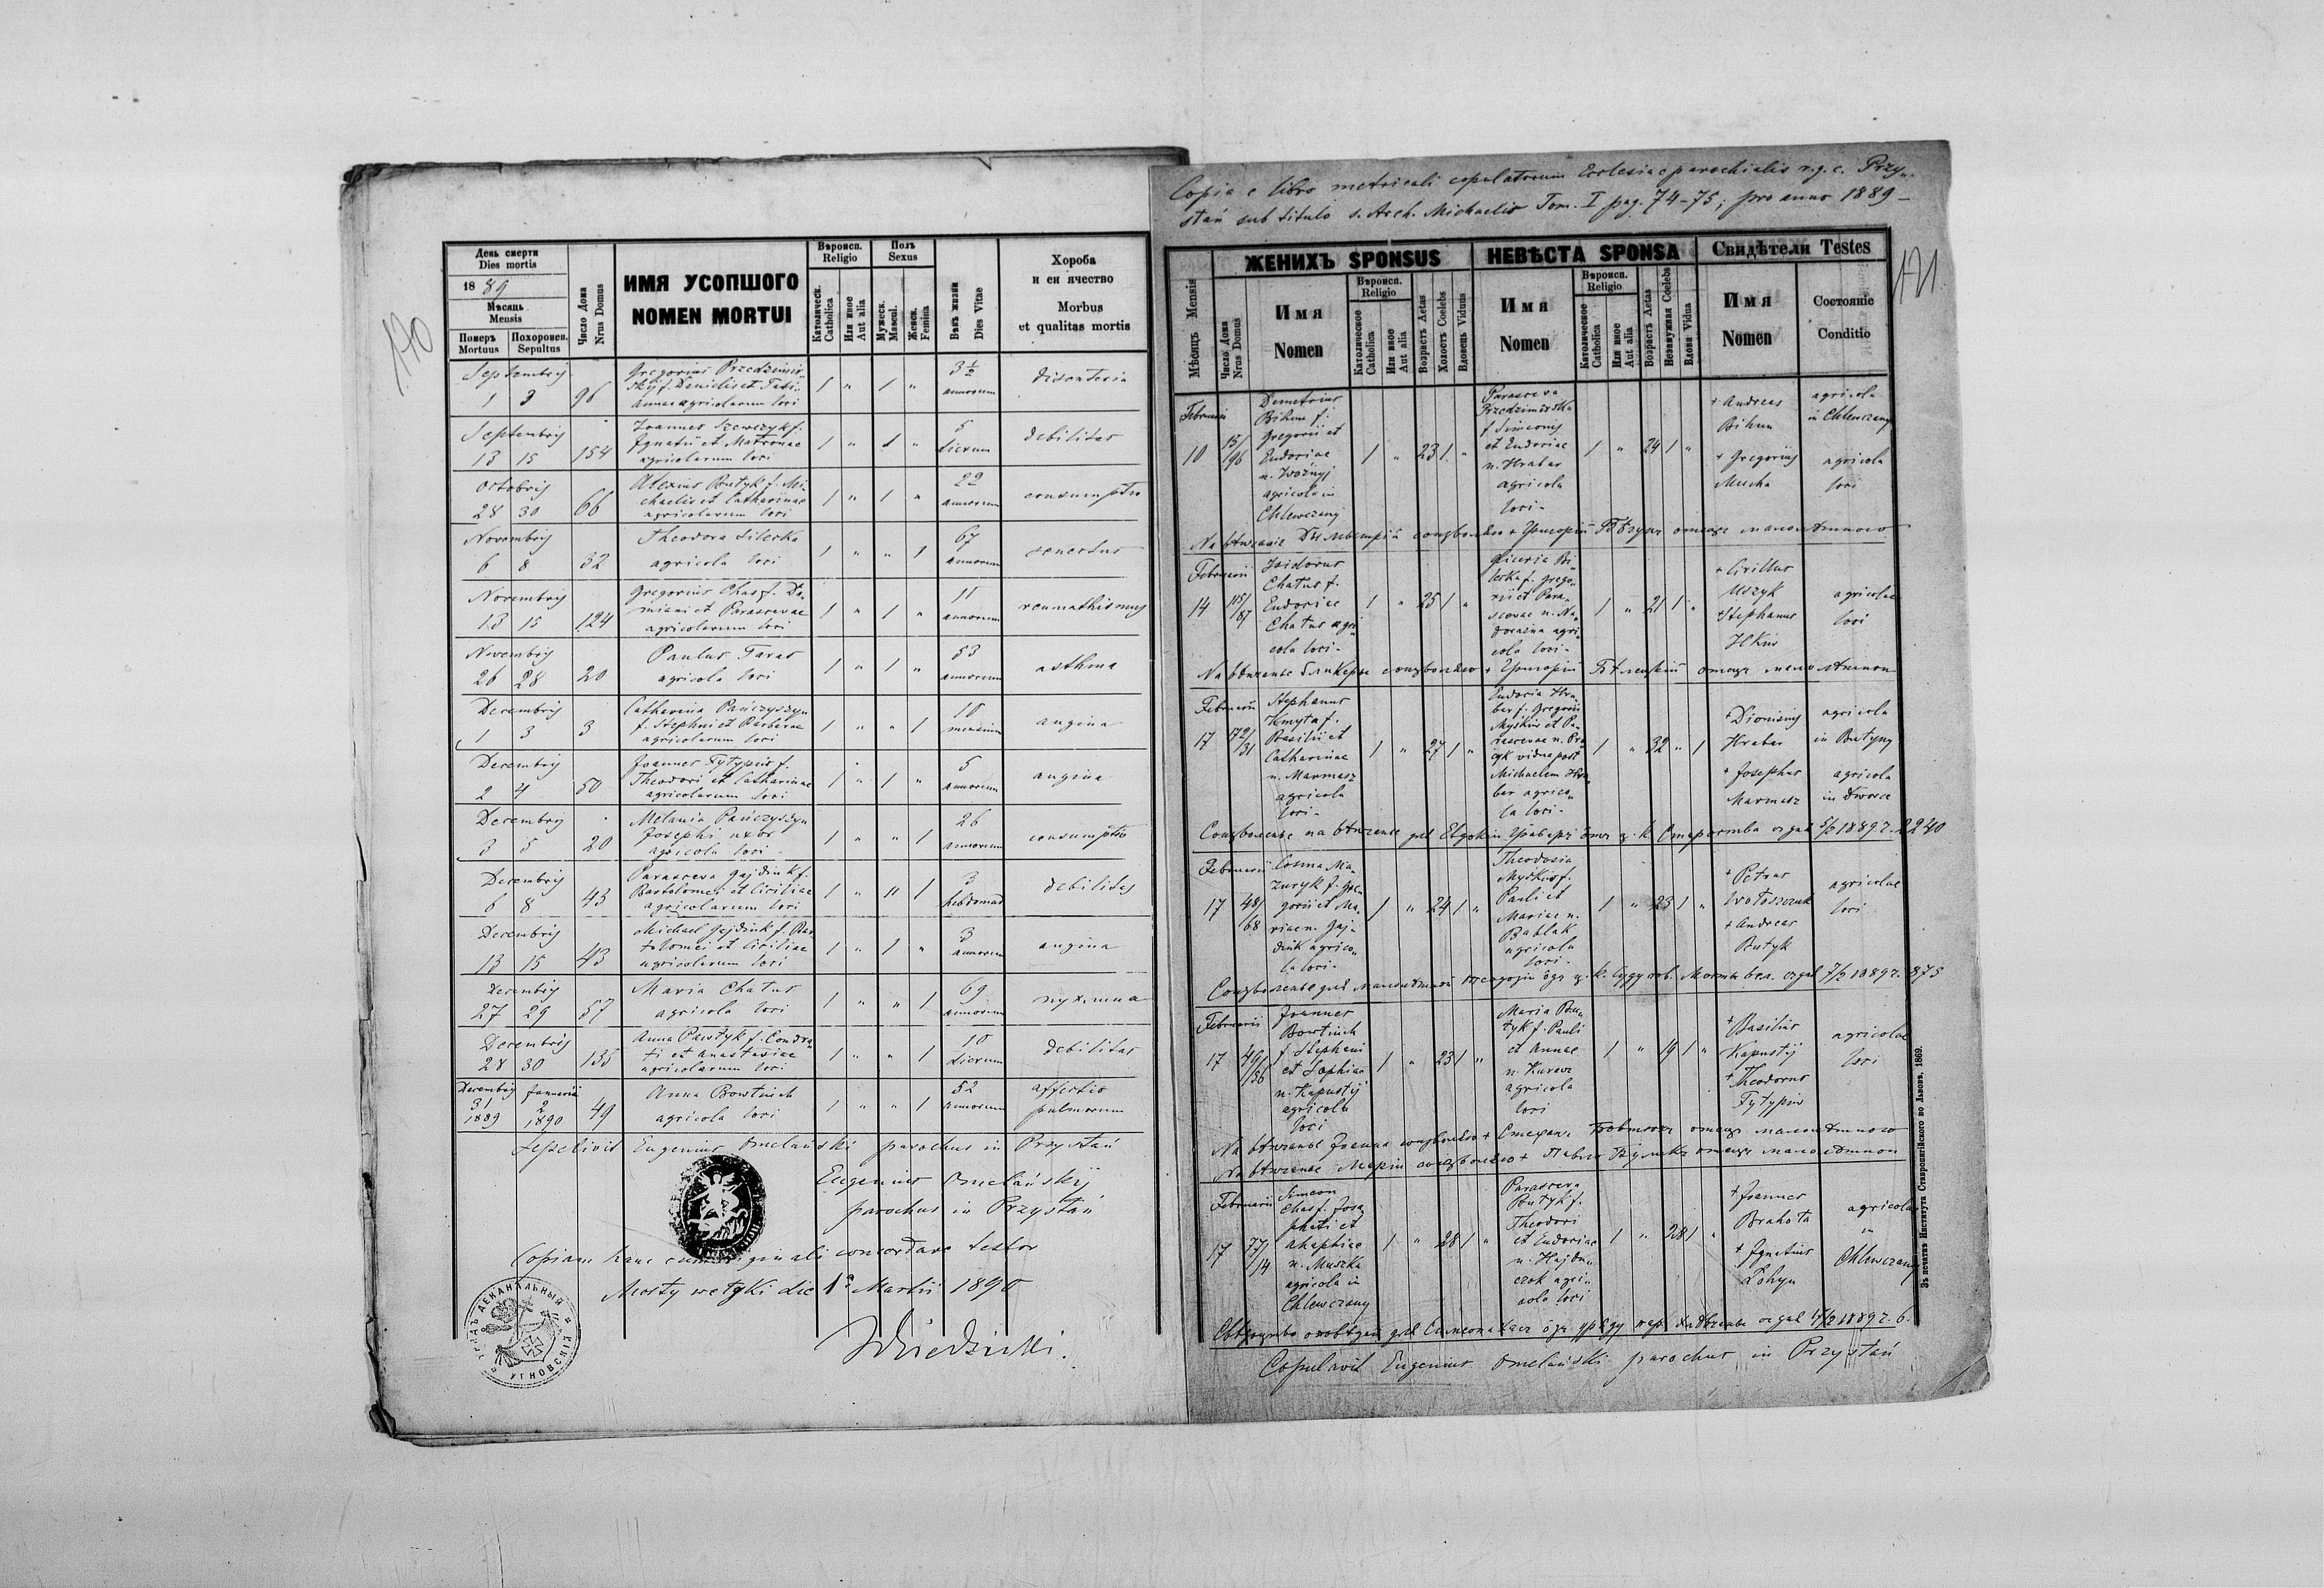 170
День смерти
Dies mortis
1889
Мѣсяць
Mensis
Померъ
Mortuus
Похоронен.
Sepultus
Число Дома
Nrus Domus
ИМЯ УСОПШОГО
NOMEN MORTUI
Вѣроисп.
Religio
Католическ.
Catholica
Или иное
Aut alia
Полъ
Sexus
Мужеск.
Mascul.
Женск.
Femina
Вѣкъ жизни
Dies Vitae
Хороба
и еи ячество
Morbus
et qualitas mortis
Septembrij
1 3 96
Gregorius Przedzimir
skij f. Danielis et Tati
annae agricolarum loci
1 " 1 "
3½
annorum
disenteria
Septembrij
13 15 154
Joannes Szewczyk f.
Ignatii et Matronae
agricolarum loci
1 " 1 "
5
dierum
debilitas
Octobrij
28 30 66
Alexius Butyk f. Mi
chaelis et Catharinae
agricolarum loci
1 " 1 "
22
annorum
consumptio
Novembrij
6 8 32
Theodora
agricola loci
1 " " 1
67
annorum
senectus
Novembrij
13 15 124
Gregorius Chas f. Da
miani et Parascevae
agricolarum loci
1 " 1 "
11
annorum
reumathismus
Novembrij
26 28 20
Paulus Taras
agricola loci
1 " 1 "
53
annorum
asthma
Decembrij
1 3 3
Catharina Pańczyszyn
f. Stephani et Barbarae
agricolarum loci
1 " " 1
10
mensium
angina
Decembrij
2 4 50
Joannes Tytypiw f.
Theodori et Catharinae
agricolarum loci
1 " 1 "
5
annorum
angina
Decembrij
3 5 20
Melania Pańczyszyn
Josephi uxor
agricola loci
1 " " 1
26
annorum
consumptio
Decembrij
6 8 43
Parasceva Gajdiuk f.
Bartolomei et Ciciliae
agricolarum loci
1 " " 1
3
hebdomad
debilitas
Decembrij
13 15 43
Michael Gejdiuk f. Bar
tolomei et Ciciliae
agricolarum loci
1 " 1 "
3
annorum
angina
Decembrij
27 29 57
Maria Chatus
agricola loci
1 " " 1
69
annorum
пухлина
Decembrij
28 30 135
Anna Pawtyk f. Condra
ti et Anastasiae
agricolarum loci
1 " " 1
10
dierum
debilitas
Decembrij Januarii
31 2
1889 1890 49
Anna Bowtiuch
agricola loci
1 " " 1
52
annorum
affectio
pulmorum
Sepelivit Eugenius Omelański parochus in Przystań
Eugenius Omelańskij
parochus in Przystań
Copiam hanc cum originali concordare testor
Mosty wełyki die 1° Martii 1890
ДЕКАНАЛЬНЫЙ
УГНОВСКІЙ
Copia e libro metricali copulatorum Ecclesiae parochialis r.g.c. Przy
stań sub titulo s. Arch. Michaelis Tom. I pag. 74-75; pro anno 1889 -
171.
ЖЕНИХЪ SPONSUS
НЕВѢСТА SPONSA
Свидѣтели Testes
Мѣсяцъ Mensis
Число Дома
Nrus Domus
Имя
Nomen
Вѣроисп.
Religio
Католическое
Catholica
Или иное
Aut alia
Возрастъ Aetas
Холостъ Coelebs
Вдовецъ Viduus
Имя
Nomen
Вѣроисп.
Religio
Католическое
Catholica
Или иное
Aut alia
Возрастъ Aetas
Незамужная Coelebs
Вдова Vidua
Имя
Nomen
Состояніе
Conditio
Februarii
10 15/96
Demetrius
Bihun f.
Gregorii et
Eudociae
n. Woźnyj
agricola in
Chlewczany
1 " 23 1 "
Parasceva
Przedzimirska
f. Simeonis
et Eudociae
n. Hrabar
agricola
loci -
1 " 24 1 "
+ Andreas
Bihun
+ Gregorius
Mucha
agricola
in Chlewczany
agricola
loci
Februarii
14 115/87
Isidorus
Chatus f.
Eudociae
Chatus agri
cola loci -
1 " 25 1 "
Gliceria Bi
lecka f. Grego
rii et Para
scevae n. Na
agri
cola loci -
1 " 21 1 "
+ Cirillus
Uszyk
+ Stephanus
Ilkiw
agricolae
loci
Februarii
17 172/31
Stephanus
Kmyta f.
Basilii et
Catharinae
n. Marmasz
agricola
loci -
1 " 27 1 "
Eudocia Hra
bar f. Gregorii
Myśkiw et Pa
rascevae n. Pro
cyk vidua post
Michaelem Hra
bar agrico
la loci -
1 " 32 " 1
+ Dionisius
Hrabar
+ Josephus
Marmasz
agricola
in Butyny
agricola
in Dworce
Februarii
17 48/68
Cosma Ma
zuryk f. Gre
gorii et Ma
riae n. Gaj
diuk agrico
la loci -
1 " 24 1 "
Theodosia
Myśkiw f.
Pauli et
Mariae n.
Bablak
agricola
loci -
1 " 23 1 "
+ Petrus
Wołoszczuk
+ Andreas
Butyk
agricolae
loci
Februarii
17 49/56
Joannes
Bowtiuch
f. Stephani
et Sophiae
n. Kapustij
agricola
loci
1 " 23 1 "
Maria Bu
tyk f. Pauli
et Annae
n. Kurow
agricola
loci
1 " 19 1 "
+ Basilius
Kapustij
+ Theodorus
Tytypiw
agricolae
loci
Februarii
17 77/14
Simeon
Chas f. Josa
phati et
Ahaphiae
n. Muszka
agricola in
Chlewczany
1 " 28 1 "
Parasceva
Butyk f.
Theodori
et Eudociae
n. Hajdu
czok agri
cola loci
1 " 28 1 "
+ Joannes
Brahota
+ Ignatius
Lohyn
agricolae
in
Chlewczany
Copulavit Eugenius Omelański parochus in Przystań
Зъ печатнѣ Института Ставропигійского во Львовѣ. 1869.